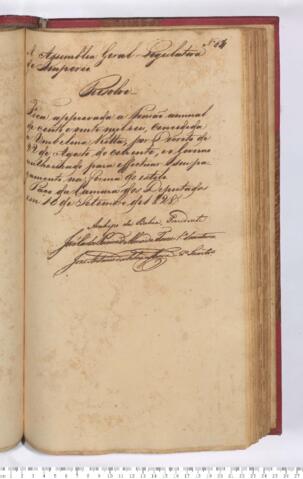 Nº 54
A Assemblea Geral Legislativa
do Imperio
Resolve
Fica approvada a Pensão annual
de cento e vinte mil reis, concedida
a Umbelina por Decreto de
22 de Agosto do corrente, e o Governo
authorisado para effectuar o seu pa
gamento na forma do estylo
Paço da Camara dos Deputados
em 10 de Setembro de 1828
Arcebispo da Bahia, Presidente
José 1º Secretario
José Antonio 2º Secretº